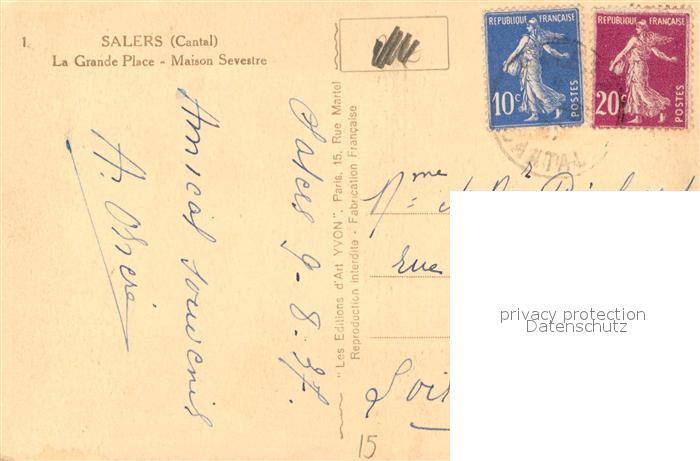 1.
SALERS (Cantal)
La Grande Place - Maison Sevestre
Salers 9-8-37.
Amical souvenir
"Les Editions d'Art YVON", Paris, 15, Rue Martel
Reproduction interdite - Fabrication Française
REPUBLIQUE FRANÇAISE
10c
POSTES
REPUBLIQUE FRANÇAISE
20c
POSTES
CANTAL
Mme
Rue
15
privacy protection
Datenschutz